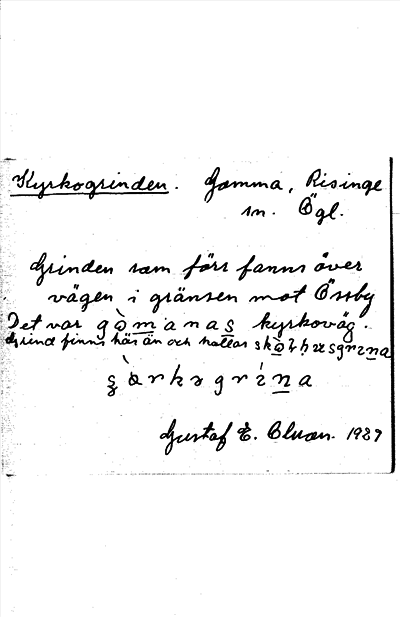 Kyrkogrinden. Gamma, Risinge
sn. Ögl.
Grinden som förr fanns över
vägen i gränsen mot Össby
Det var gòmanas kyrkoväg.
Grind finns här än och kallas
Gustaf E. 1927